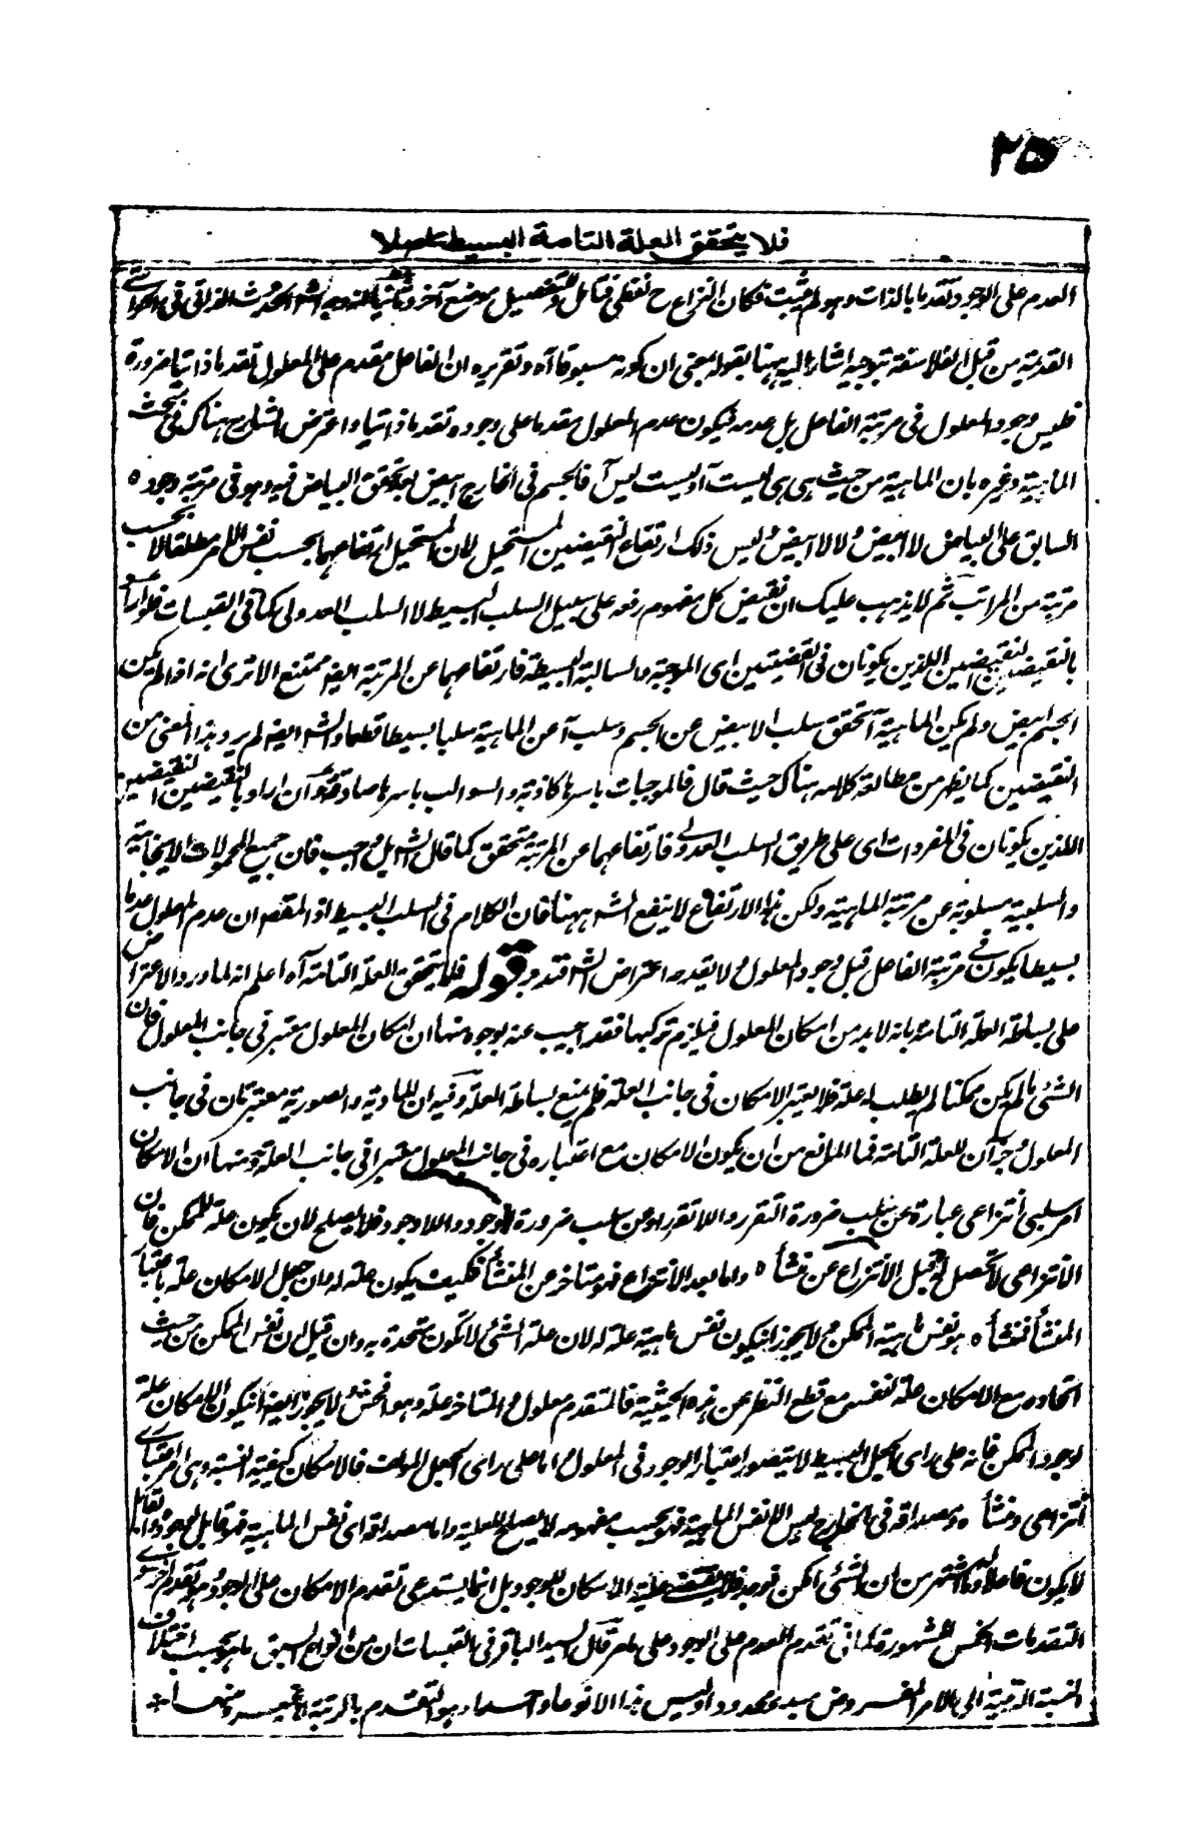 ٢٥
فلا يتحقق العلة التامة البسيطة اصلا
العدم على الوجود تقدما بالذات وهو لم يثبت فكان النزاع ح لفظى فتامل والتفصيل موضع آخر
القديمة من قبل الفلاسفة بتوجيه اشار اليه ههنا بقوله بمعنى ان كونه مسبوقا آه وتقريره ان الفاعل مقدم على المعلول تقدما ذاتيا ضرورة
فليس وجود المعلول فى مرتبة الفاعل بل عدمه فيكون عدم المعلول مقدما على وجوده تقدما ذاتيا واعترض الشارح هناك فى مبحث
الماهية وغيره بان الماهية من حيث هى هى ليست آ وليست ليس آ فالجسم فى الخارج ابيض لتحقق البياض فيه وهو فى مرتبة وجوده
السابق على البياض لا ابيض ولا لا ابيض وليس ذلك ارتفاع النقيضين المستحيل لان المستحيل ارتفاعهما بحسب نفس الامر مطلقا لا بحسب
مرتبة من المراتب ثم لا يذهب عليك ان نقيض كل مفهوم رفعه على سبيل السلب البسيط لا السلب العدولى كما فى القبسات فلو اراد
بالنقيضين النقيضين اللذين يكونان فى القضيتين اى الموجبة والسالبة البسيطة فارتفاعهما عن المرتبة ايضا ممتنع الا ترى انه اذا لم يكن
الجسم ابيض ولم يكن الماهية آ تحقق سلب الابيض عن الجسم وسلب آ عن الماهية سلبا بسيطا قطعا والشارح ايضا لم يرد هذا المعنى من
النقيضين كما يظهر من مطالعة كلامه هناك حيث قال فالموجبات باسرها كاذبة والسوالب باسرها صادقة وان اراد بالنقيضين النقيضين
اللذين يكونان فى المفردات اى على طريق السلب العدولى فارتفاعهما عن المرتبة متحقق كما قال الشه بل واجب فان جميع المحمولات الايجابية
والسلبية مسلوبة عن مرتبة الماهية ولكن هذا الارتفاع لا ينفع الشه ههنا فان الكلام فى السلب البسيط اذ المقصود ان عدم المعلول عدما
بسيطا يكون فى مرتبة الفاعل قبل وجود المعلول ولا يقدحه اعتراض الشه فتدبر قوله فلا يتحقق العلة التامة آه اعلم انه لما ورد الاعتراض
على بساطة العلة التامة بانه لا بد من امكان المعلول فيلزم تركبها فقد اجيب عنه بوجوه منها ان امكان المعلول معتبر فى جانب المعلول فان
الشئ ما لم يكن ممكنا لم يطلب له علة فلا يعتبر الامكان فى جانب العلة فلم يمنع بساطة العلة وفيه ان المادية والصورية معتبرتان فى جانب
المعلول وجزآن للعلة التامة فما المانع من ان يكون الامكان مع اعتباره فى جانب المعلول معتبرا فى جانب العلة ومنها ان الامكان
امر سلبى انتزاعى عبارة عن سلب ضرورة التقرر واللاتقرر او عن سلب ضرورة الوجود واللاوجود فلا يصلح لان يكون علة للممكن فان
الانتزاعى لا تحصل له قبل الانتزاع عن منشأه واما بعد الانتزاع فهو متاخر عن المنشأ فكيف يكون علة له وان جعل الامكان علة باعتبار
المنشأ فمنشأه هو نفس ماهية الممكن ولا يجوز ان يكون نفس ماهية علة له لان علة الشئ لا تكون متحدة به وان قيل ان نفس الممكن من حيث
اتحاده مع الامكان علة لنفسه مع قطع النظر عن هذه الحيثية فالمتقدم معلول والمتاخر علة وهو فحش ولا يجوز ايضا ان يكون الامكان علة
لوجود الممكن فانه على راى الجعل البسيط لا يتصور اعتبار الوجود فى المعلول واما على راى الجعل المولف فالامكان كيفية النسبة وهى امر اعتبارى
انتزاعى ومنشأه ومصداقه فى الخارج ليس الا نفس الماهية فهو بحسب مفهومه لا يصلح للعلية واما مصداقه اى نفس الماهية فهو قابل للوجود والقابل
لا يكون فاعلا وما اشتهر من ان الشئ امكن فوجد فلا يقتضى علية الامكان للوجود بل انما يستدعى تقدم الامكان على الوجود وهو تقدم آخر سوى
التقدمات الخمس المشهورة كما فى تقدم العدم على الوجود على ما مر قال السيد الباقر فى القبسات ان من انواع السبق ما هو بحسب اختلاف
النسبة الرتبية الى الامر المفروض مبدء محدودا وليس هذا الا نوعا واحدا هو التقدم بالرتبة ومنها